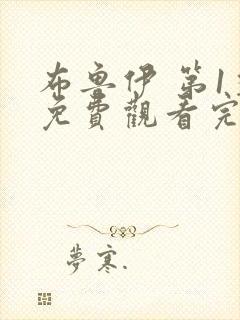 布魯伊 第1
免費觀看完
夢寒.